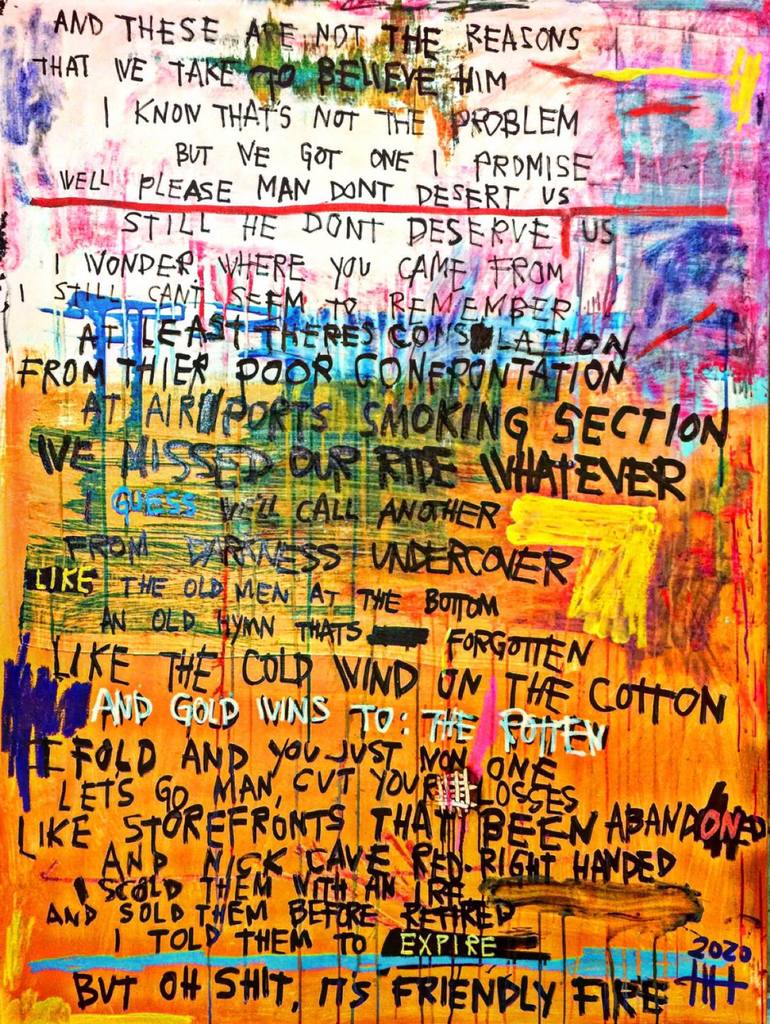 AND THESE ARE NOT THE REASONS
THAT WE TAKE TO BELIEVE HIM
I KNOW THAT'S NOT THE PROBLEM
BUT WE GOT ONE I PROMISE
WELL PLEASE MAN DONT DESERT US
STILL HE DONT DESERVE US
I WONDER WHERE YOU CAME FROM
I STILL CANT SEEM TO REMEMBER
AT LEAST THERES CONSOLATION
FROM THIER POOR CONFRONTATION
AT AIRPORTS SMOKING SECTION
WE MISSED OUR RIDE WHATEVER
I GUESS WE'LL CALL ANOTHER
FROM DARKNESS UNDERCOVER
LIKE THE OLD MEN AT THE BOTTOM
AN OLD HYMN THATS FORGOTTEN
LIKE THE COLD WIND ON THE COTTON
AND GOLD WINS TO: THE ROTTEN
I FOLD AND YOU JUST WON ONE
LETS GO MAN, CUT YOUR LOSSES
LIKE STOREFRONTS THAT BEEN ABANDONED
AND NICK CAVE RED-RIGHT HANDED
I SCOLD THEM WITH AN IRE
AND SOLD THEM BEFORE RETIRED
I TOLD THEM TO EXPIRE
2020
BUT OH SHIT, IT'S FRIENDLY FIRE